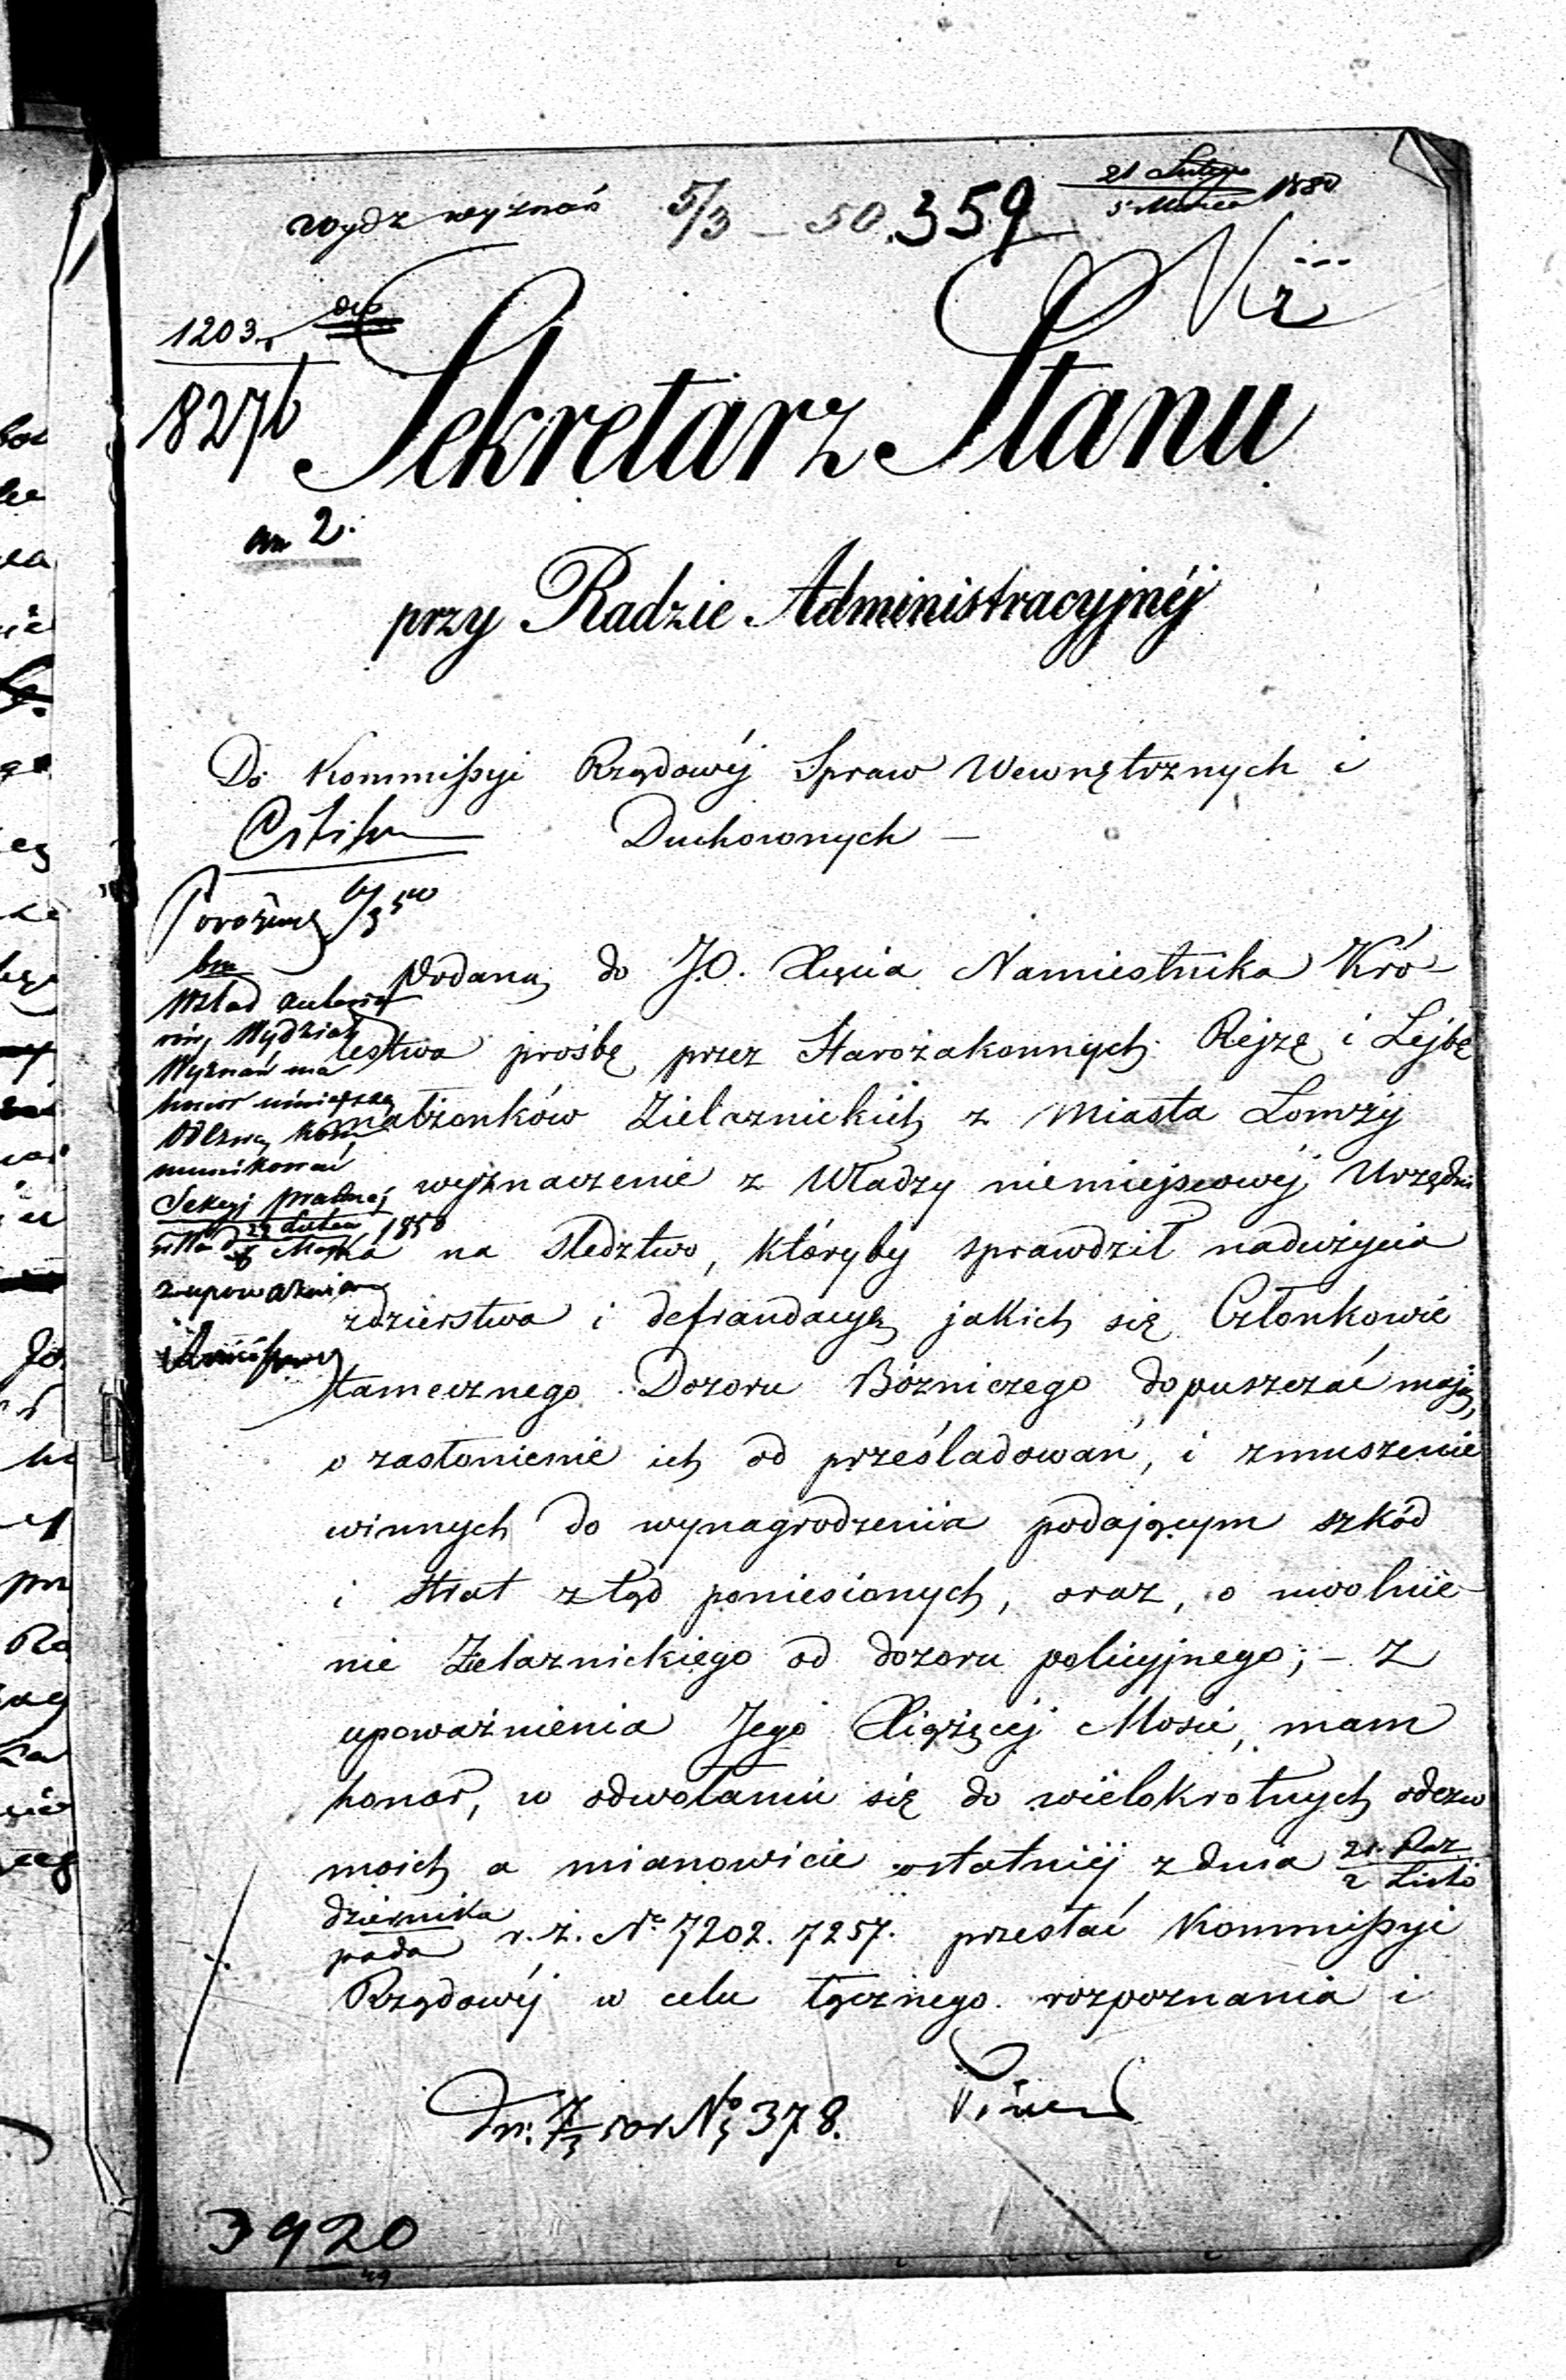 wydz wyznań 5/3 – 50. 359 21 Lutego / 5 Marca 1850
1203
8276
Sekretarz Stanu
2.
przy Radzie Administracyjnéj
Do Kommissyi Rządowéj Spraw Wewnętrznych i
Duchownych –
Podaną do J.O. Xięcia Namiestnika Kró-
lestwa prośbę przez Starozakonnych Rejzę i Lejbę
małżonków Żielaznickich z Miasta Łomży
o wyznaczenie z Władzy niemiejscowéj Urzędni-
ka na śledztwo, któryby sprawdził nadużycia
zdzierstwa i defraudacyą jakich się Członkowie
tamecznego Dozoru Bóżniczego dopuszczać mają,
o zasłonienie ich od prześladowań, i zmuszenie
winnych do wynagrodzenia podającym szkód
i strat ztąd poniesionych, oraz, o uwolnie-
nie Żelaznickiego od dozoru policyjnego; – z
upoważnienia Jego Xiążęcej Mości, mam
honor, w odwołaniu się do wielokrotnych odezw
moich a mianowicie ostatniéj z dnia 21. Paz / 2 Listo
dziernika / pada r. z. No 7202. 7257. przesłać Kommissyi
Rządowéj w celu łącznego rozpoznania i
Wydział
Wyznań ma
honor niniejszą
Odezwę kom
munikować
Sekcyi prawnéj
1850
z upoważnienia
No 378.
3920